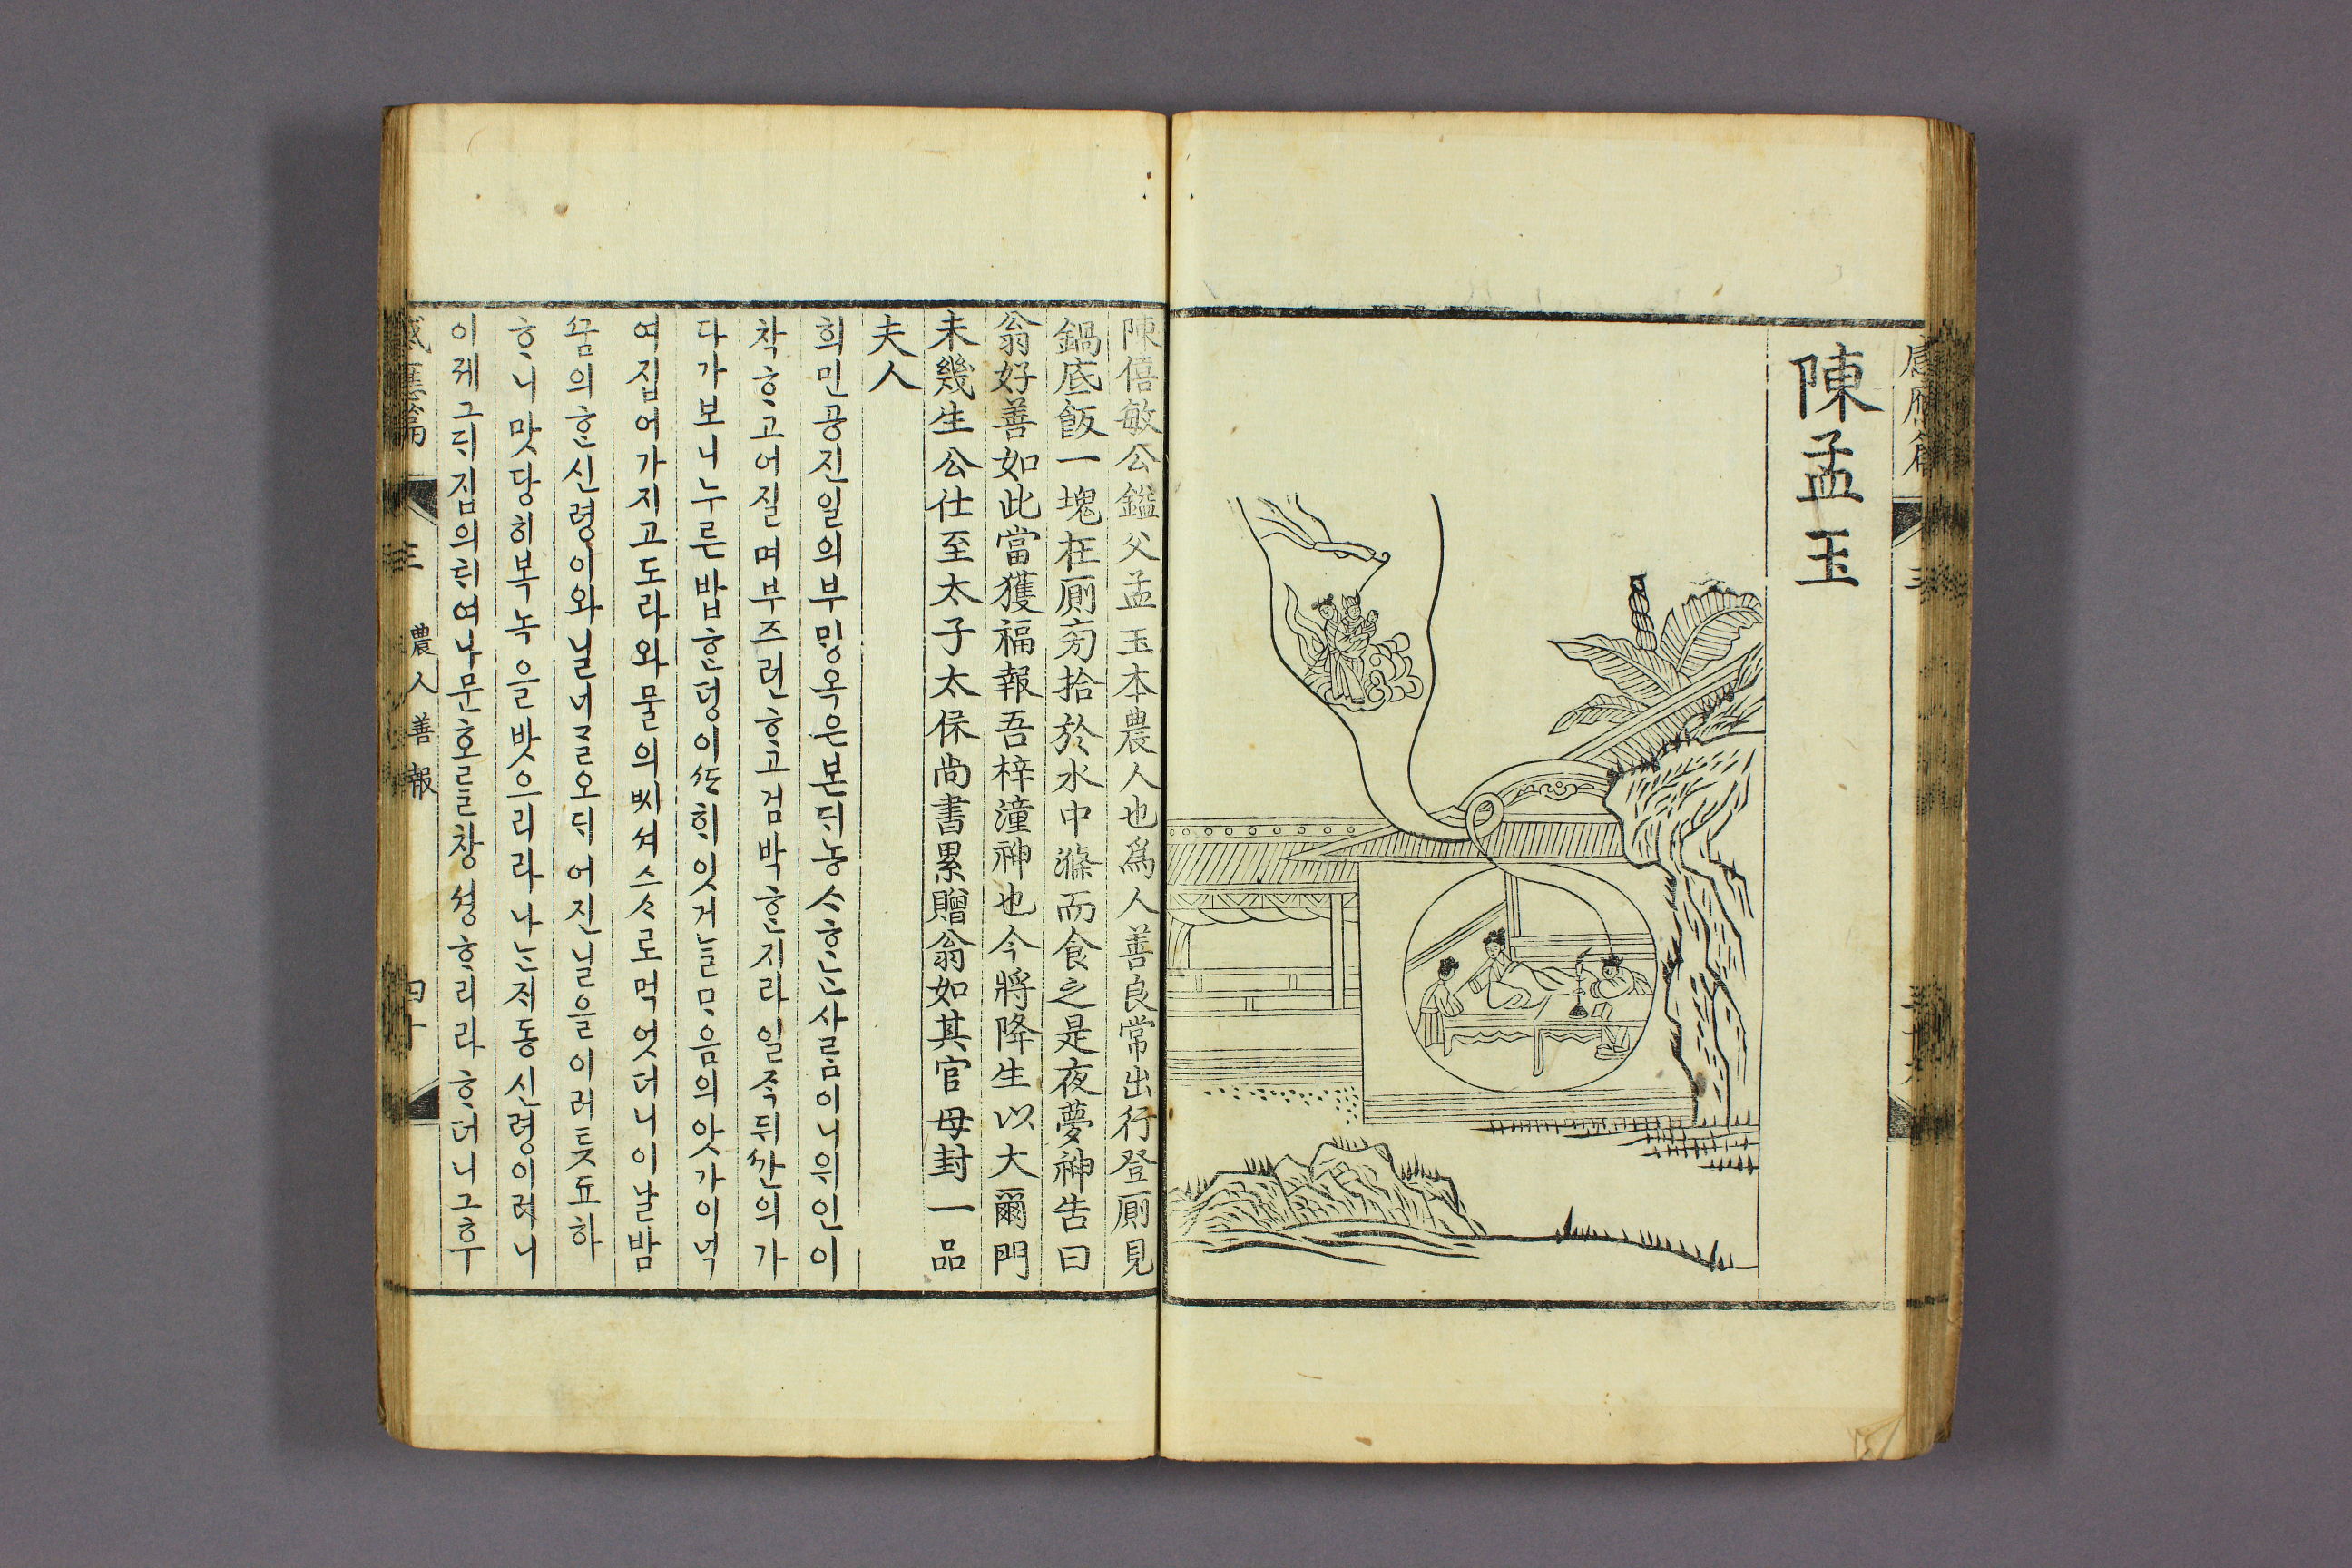 陳孟玉
陳僖敏公鎰父孟玉本農人也爲人善良常出行登厠見
鍋底飯一塊在厠旁拾於水中滌而食之是夜夢神告曰
翁好善如此當獲福報吾梓潼神也今將降生以大爾門
未幾生公仕至太子太保尚書累贈翁如其官母封一品
夫人
희민공진일의부밍옥은본ᄃᆡ농ᄉᆞᄒᆞᄂᆞᆫ사ᄅᆞᆷ이니위인이
착ᄒᆞ고어질며부즈런ᄒᆞ고검박ᄒᆞᆫ지라일즉뒤ᄭᅡᆫ의가
다가보니누른밥ᄒᆞᆫ덩이ᄯᅡᄒᆡ잇거ᄂᆞᆯᄆᆞ음의앗가이넉
여집어가지고도라와물의ᄡᅵ셔스ᄉᆞ로먹엇더니이날밤
ᄭᅮᆷ의ᄒᆞᆫ신령이와닐너ᄀᆞᆯ오ᄃᆡ어진닐을이러틋됴하
ᄒᆞ니맛당히복녹을밧으리라나ᄂᆞᆫᄌᆡ동신령이러니
이제그ᄃᆡ집의ᄐᆡ여나문호ᄅᆞᆯ창셩ᄒᆞ리라ᄒᆞ더니그후
感應篇 三 農人善報 四十